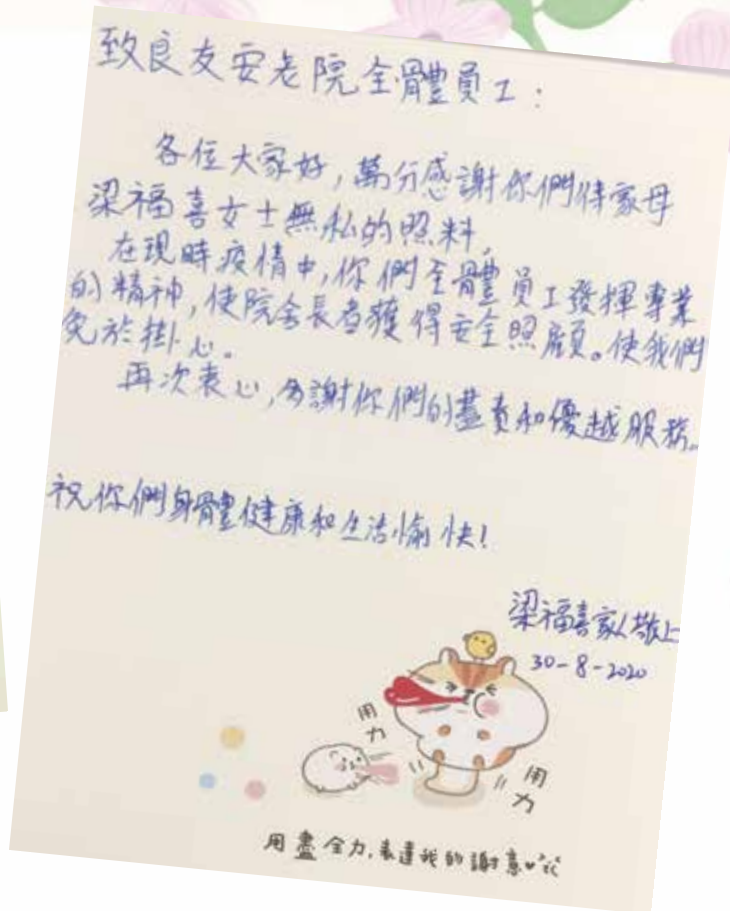 致良友安老院全體員工：
各位大家好，萬分感謝你們待家母
梁福喜女士無私的照料，
在現時疫情中，你們全體員工發揮專業
的精神，使院舍長者獲得安全照顧。使我們
免於掛心。
再次衷心，多謝你們的盡責和優越服務。
祝你們身體健康和生活愉快！
梁福喜家人敬上
30-8-2020
用力
用力
用盡全力，表達我的謝意